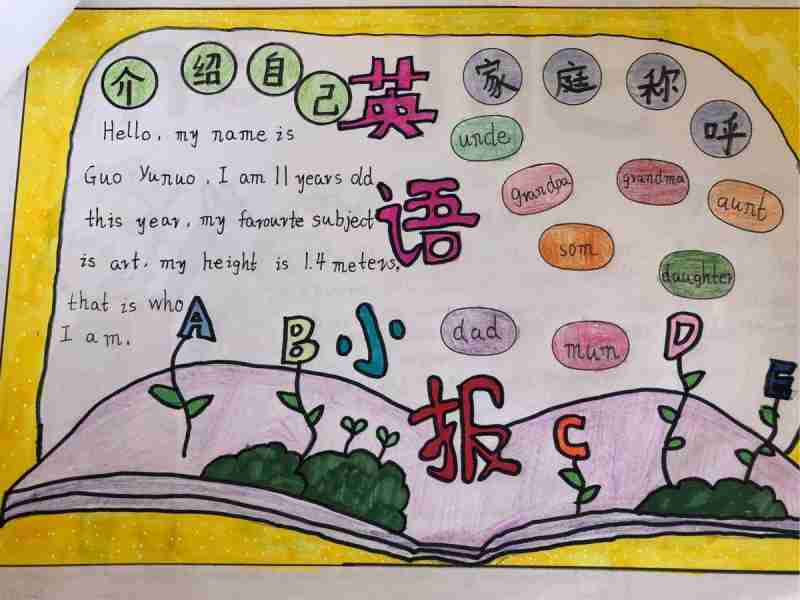 介绍自己
Hello, my name is
Guo Yunuo, I am 11 years old
this year, my farourte subject
is art, my height is 1.4 meters,
that is who
I am.
英语小报
家庭称呼
unde
grandpa
grandma
aunt
som
daughter
dad
mun
A
B
C
D
E